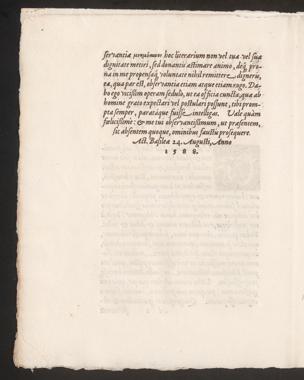 servantiæ μνημόσυνον hoc literarium non vel tua vel suâ
dignitate metiri, sed donantis æstimare animo, déq; pro-
na in me propensáq; voluntate nihil remittere digneris,
ea, qua par est, observantia etiam atque etiam rogo. Da-
bo ego vicissim operam sedulò, ut ea officia cuncta, quæ ab
homine grato expectari vel postulari possunt, tibi prom-
pta semper, paratáque fuisse intelligas. Vale quàm
fœlicissimè: & me tui observantissimum, ut præsentem,
sic absentem quoque, ominibus faustis prosequere.
Act. Basileæ 24. Augusti, Anno
1588.